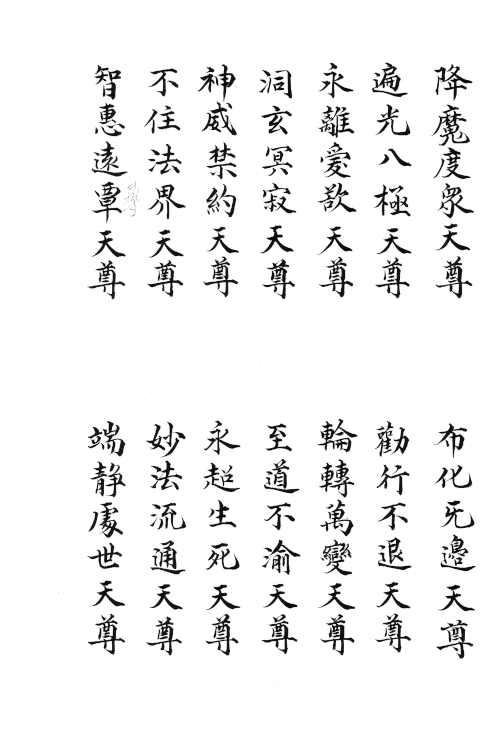 降魔度眾天尊
遍光八極天尊
永離愛欲天尊
洞玄冥寂天尊
神威禁約天尊
不住法界天尊
智惠遠覃天尊
布化无邊天尊
勸行不退天尊
輪轉萬變天尊
至道不渝天尊
永超生死天尊
妙法流通天尊
端静處世天尊